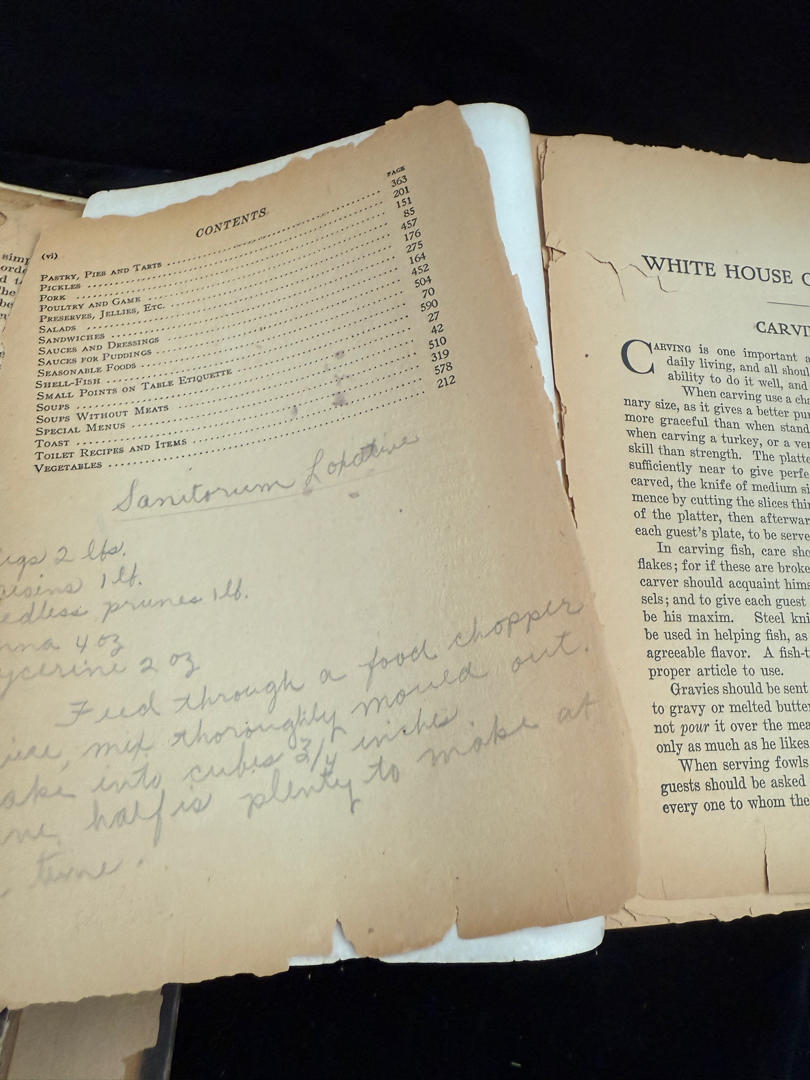 simp
orde
(vi)
CONTENTS
PAGE
PASTRY, PIES AND TARTS 363
PICKLES 201
PORK 151
POULTRY AND GAME 85
PRESERVES, JELLIES, ETC. 457
SALADS 176
SANDWICHES 275
SAUCES AND DRESSINGS 164
SAUCES FOR PUDDINGS 452
SEASONABLE FOODS 504
SHELL-FISH 70
SMALL POINTS ON TABLE ETIQUETTE 590
SOUPS 27
SOUPS WITHOUT MEATS 42
SPECIAL MENUS 510
TOAST 319
TOILET RECIPES AND ITEMS 578
VEGETABLES 212
Sanitorum Loxative
igs 2 lbs.
aisins 1 lb.
edless prunes 1 lb.
nna 4 oz
ycerine 2 oz
Feed through a food chopper
mix thoroughly mould out.
ake into cubes 3/4 inches.
half is plenty to make at
time.
WHITE HOUSE C
CARVI
CARVING is one important a
daily living, and all shoul
ability to do it well, and
When carving use a cha
nary size, as it gives a better pur
more graceful than when stand
when carving a turkey, or a ver
skill than strength. The platte
sufficiently near to give perfe
carved, the knife of medium si
mence by cutting the slices thin
of the platter, then afterwar
each guest's plate, to be serve
In carving fish, care sho
flakes; for if these are broke
carver should acquaint hims
sels; and to give each guest
be his maxim. Steel kni
be used in helping fish, as
agreeable flavor. A fish-t
proper article to use.
Gravies should be sent
to gravy or melted butter
not pour it over the mea
only as much as he likes
When serving fowls
guests should be asked
every one to whom the